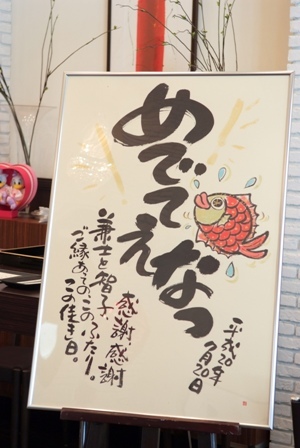 めでてえなっ
感謝感謝
兼士と智子、
ご縁あるのこのふたり。
この佳き日。
平成20年
9月20日